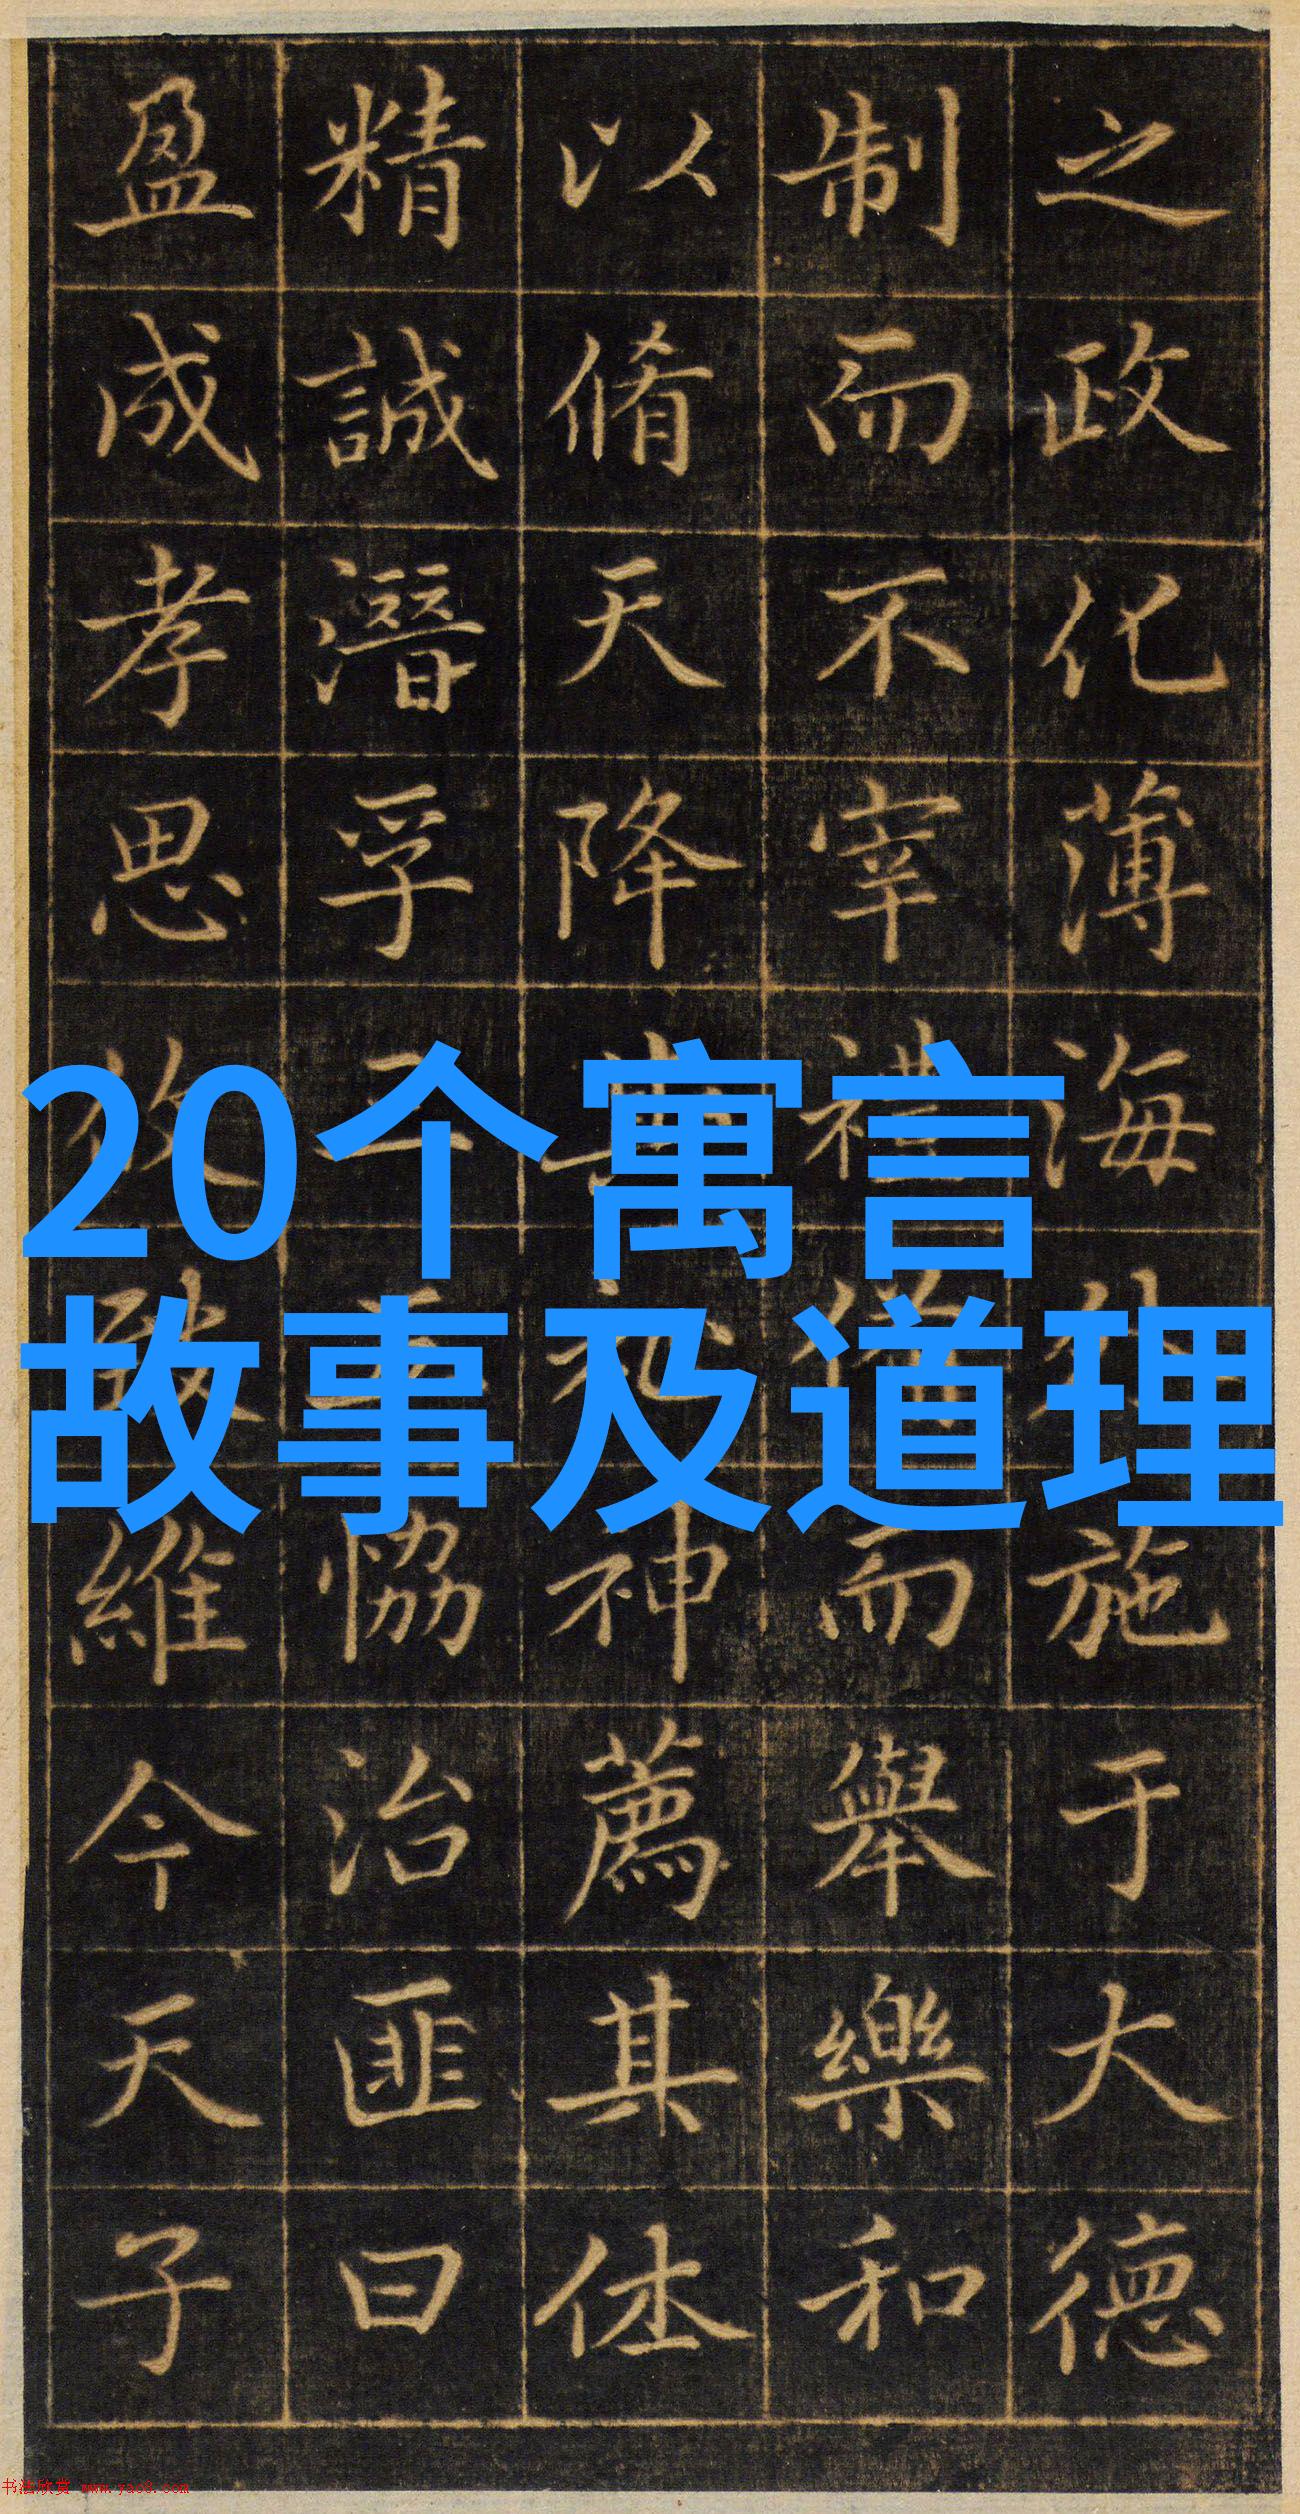 之政化薄海施于大德
制而不宰禮而舉樂和
以脩天降神薦其
精誠潛孚恊治匪曰
盈成孝思維今天子
20个寓言
故事及道理
书法欣赏 www.yac8.com